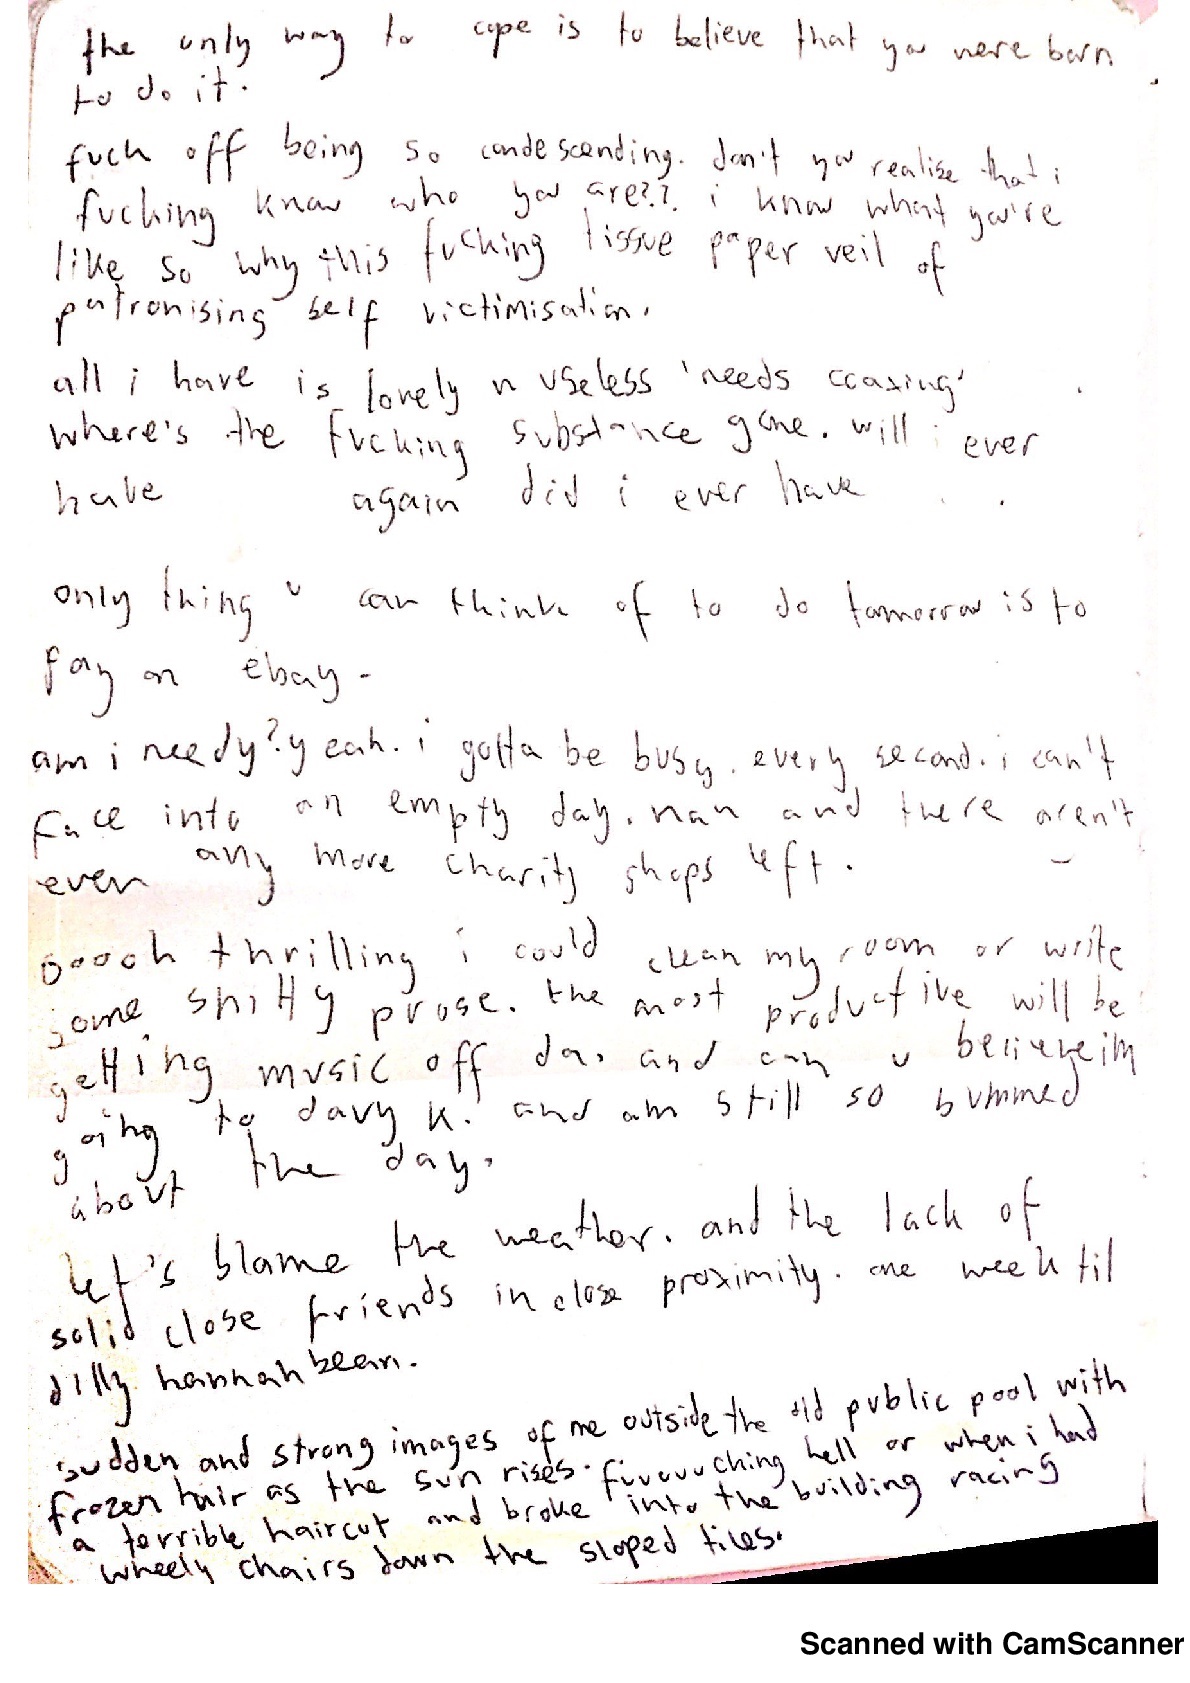 the only way to cope is to believe that you were born
to do it.
fuck off being so condescending. don't you realise that i
fucking know who you are?? i know what you're
like so why this fucking tissue paper veil of
patronising self victimisation.
all i have is lonely n useless 'needs coaxing'
where's the fucking substance gone. will i ever
have again did i ever have
only thing u can think of to do tomorrow is to
on ebay -
am i needy? yeah. i gotta be busy. every second. i can't
face into an empty day. nah and there aren't
even any more charity shops left.
ooooh thrilling i could clean my room or write
some shitty prose. the most productive will be
getting music off da. and can u believe im
going to davy k. and am still so bummed
about the day.
let's blame the weather. and the lack of
solid close friends in close proximity. one week til
dilly hannah bean.
sudden and strong images of me outside the old public pool with
frozen hair as the sun rises. fuuuuucking hell or when i had
a terrible haircut and broke into the building racing
wheely chairs down the sloped tiles.
Scanned with CamScanner